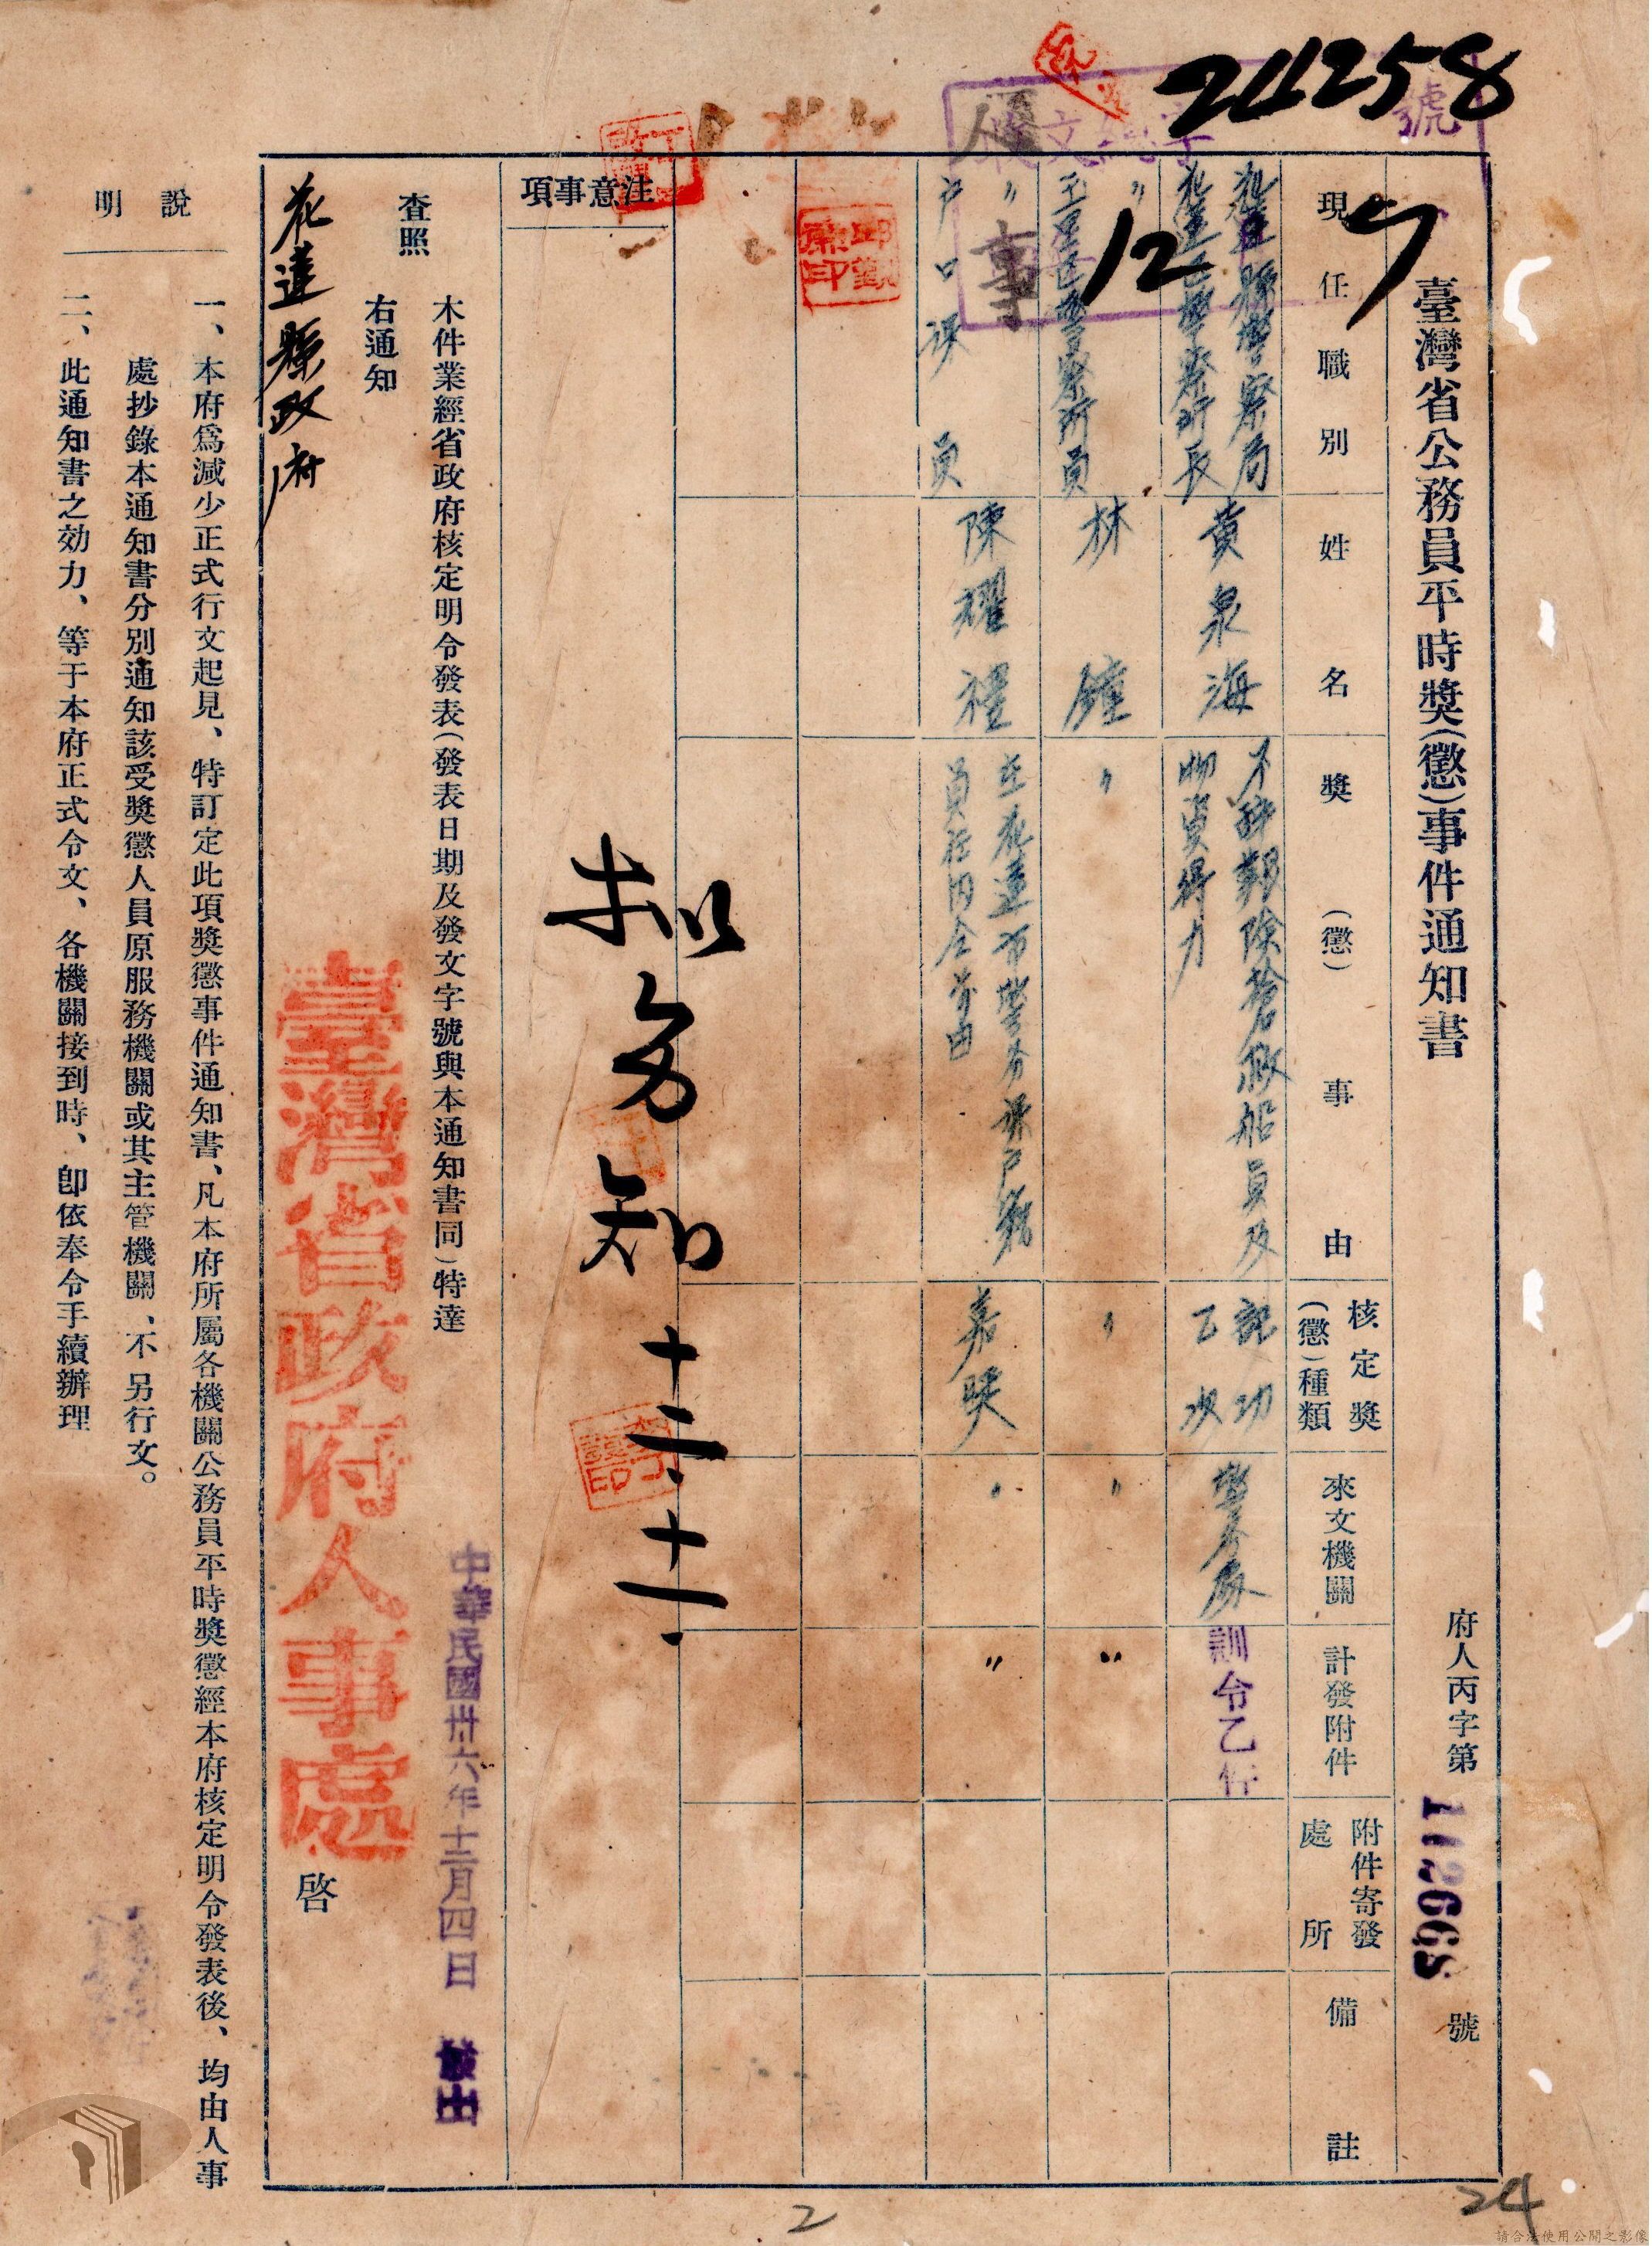 24258
號
12
臺灣省公務員平時獎(懲)事件通知書
府人丙字第
112668
號
現任職別
姓名
獎(懲)事由
核定獎(懲)種類
來文機關
計發附件
附件寄發處所
備註
花蓮縣警察局
花蓮區警察所長
黃泉海
不辭艱險搶救船員及
物資得力
記功
乙次
警務處
訓令乙件
〃
玉里區警察所員
林鐘
〃
〃
〃
〃
〃
戶口課員
陳耀禮
在花蓮市警務課戶籍
員任內全前由
嘉獎
〃
〃
人事
注意事項
擬存知 十二.十一.
木件業經省政府核定明令發表(發表日期及發文字號與本通知書同)特達
查照
右通知
花蓮縣政府
中華民國卅六年十二月四日 發出
臺灣省政府人事處
啓
說明
一、本府爲減少正式行文起見、特訂定此項獎懲事件通知書、凡本府所屬各機關公務員平時獎懲經本府核定明令發表後、均由人事
處抄錄本通知書分別通知該受獎懲人員原服務機關或其主管機關、不另行文。
二、此通知書之効力、等于本府正式令文、各機關接到時、卽依奉令手續辦理
2
24
請合法使用公開之影像